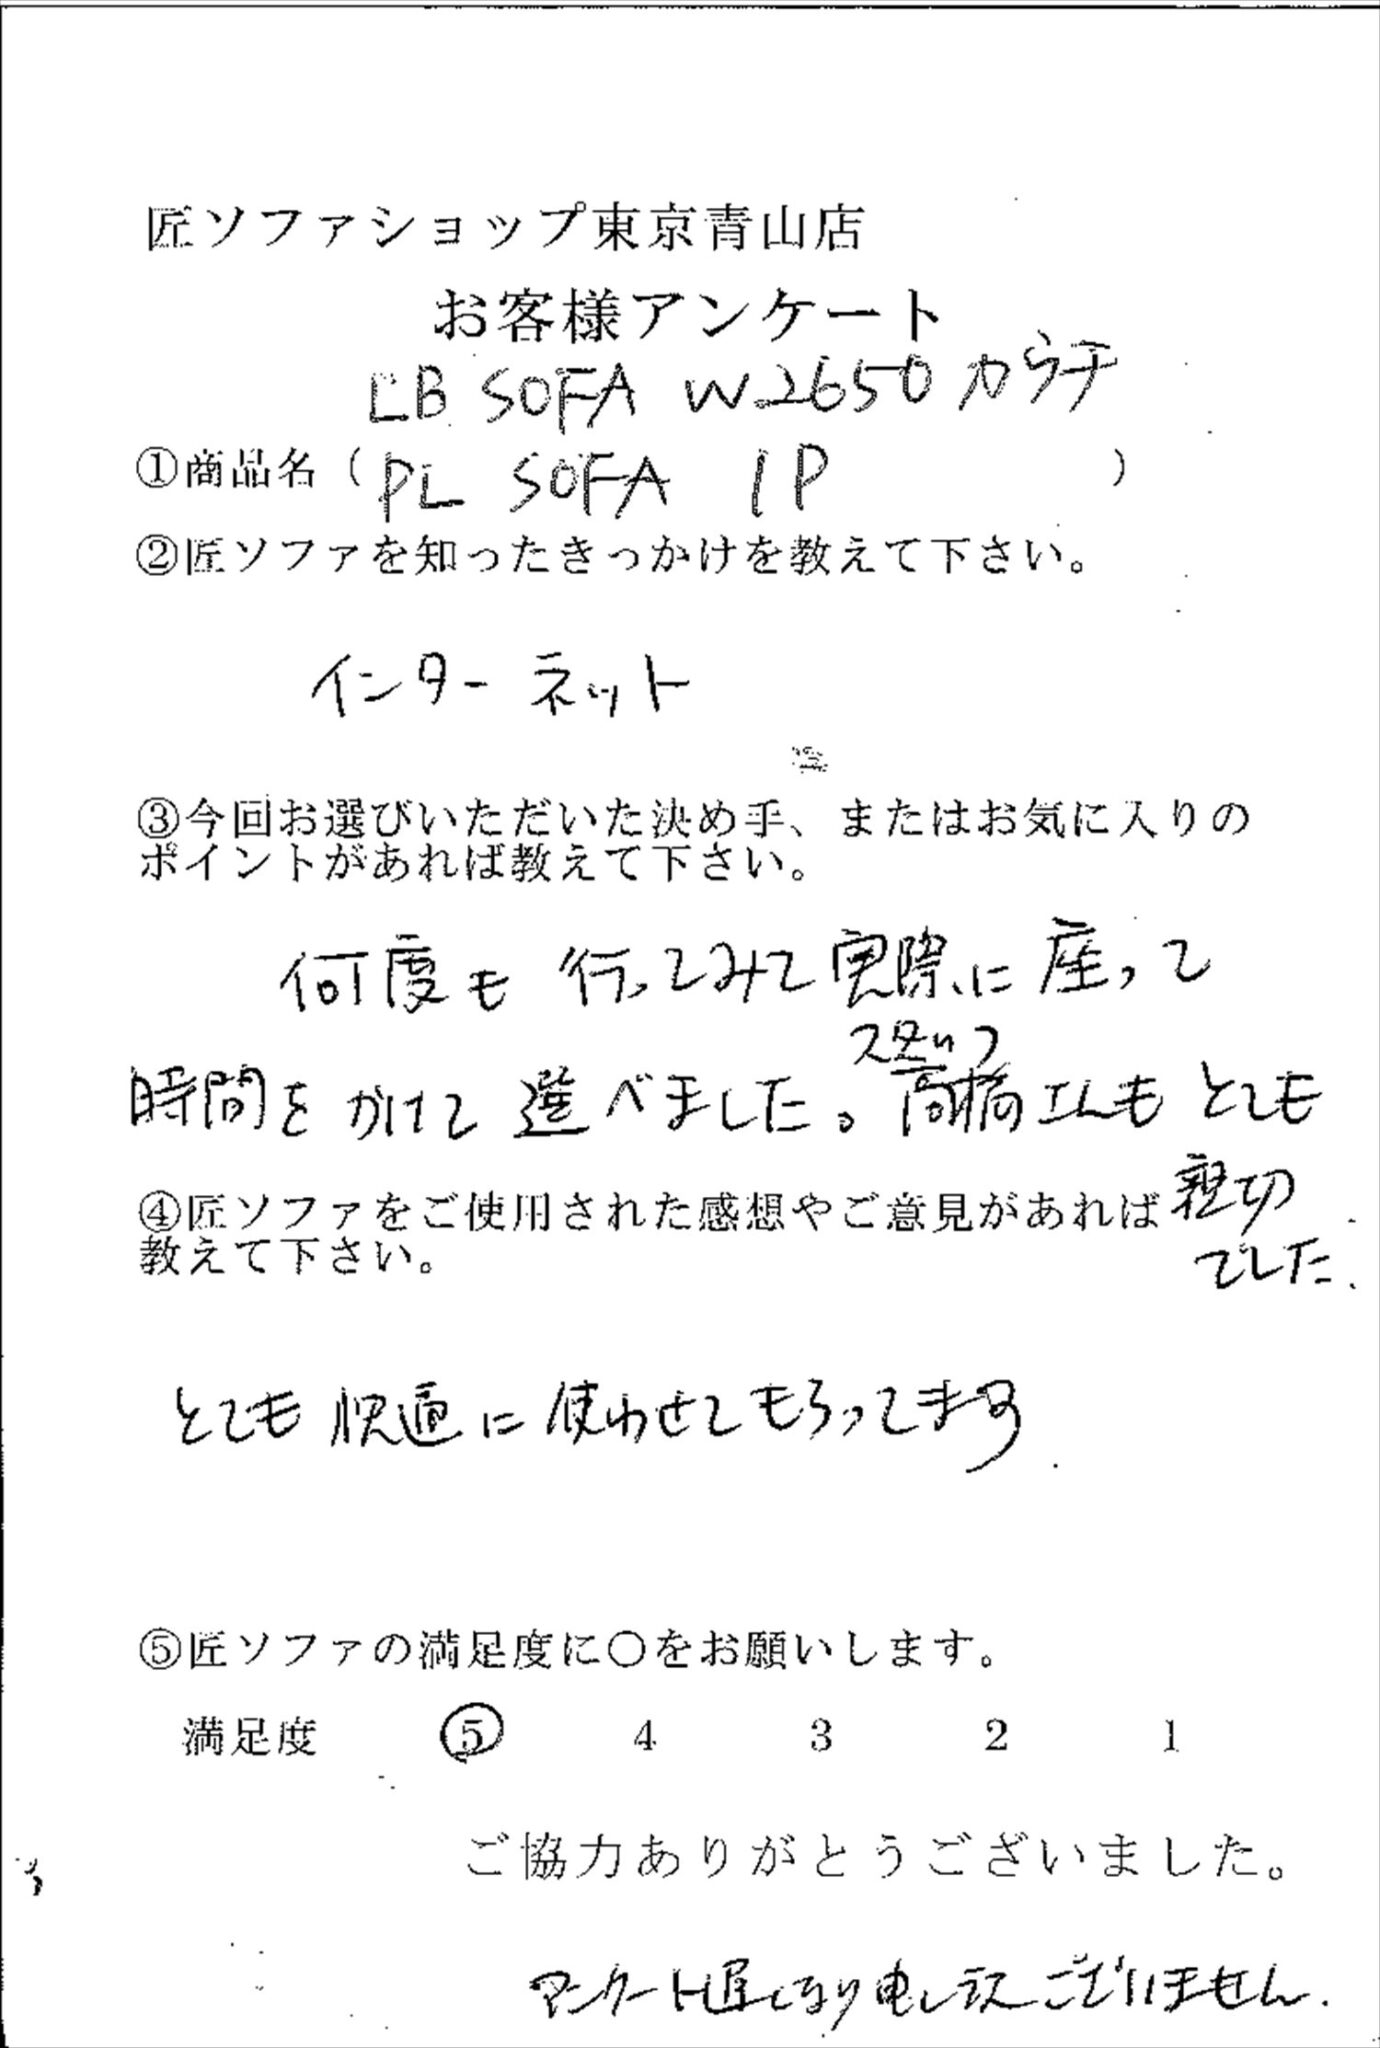 匠ソファショップ東京青山店
お客様アンケート
LB SOFA W2650 カウチ
①商品名（PL SOFA 1P）
②匠ソファを知ったきっかけを教えて下さい。
インターネット
③今回お選びいただいた決め手、またはお気に入りの
ポイントがあれば教えて下さい。
何度も行ってみて実際に座って
スタッフ
時間をかけて選べました。高橋さんもとても
親切
でした.
④匠ソファをご使用された感想やご意見があれば
教えて下さい。
とても快適に使わせてもらってます.
⑤匠ソファの満足度に〇をお願いします。
満足度 5 4 3 2 1
ご協力ありがとうございました。
アンケート遅くなり申し訳ございません.